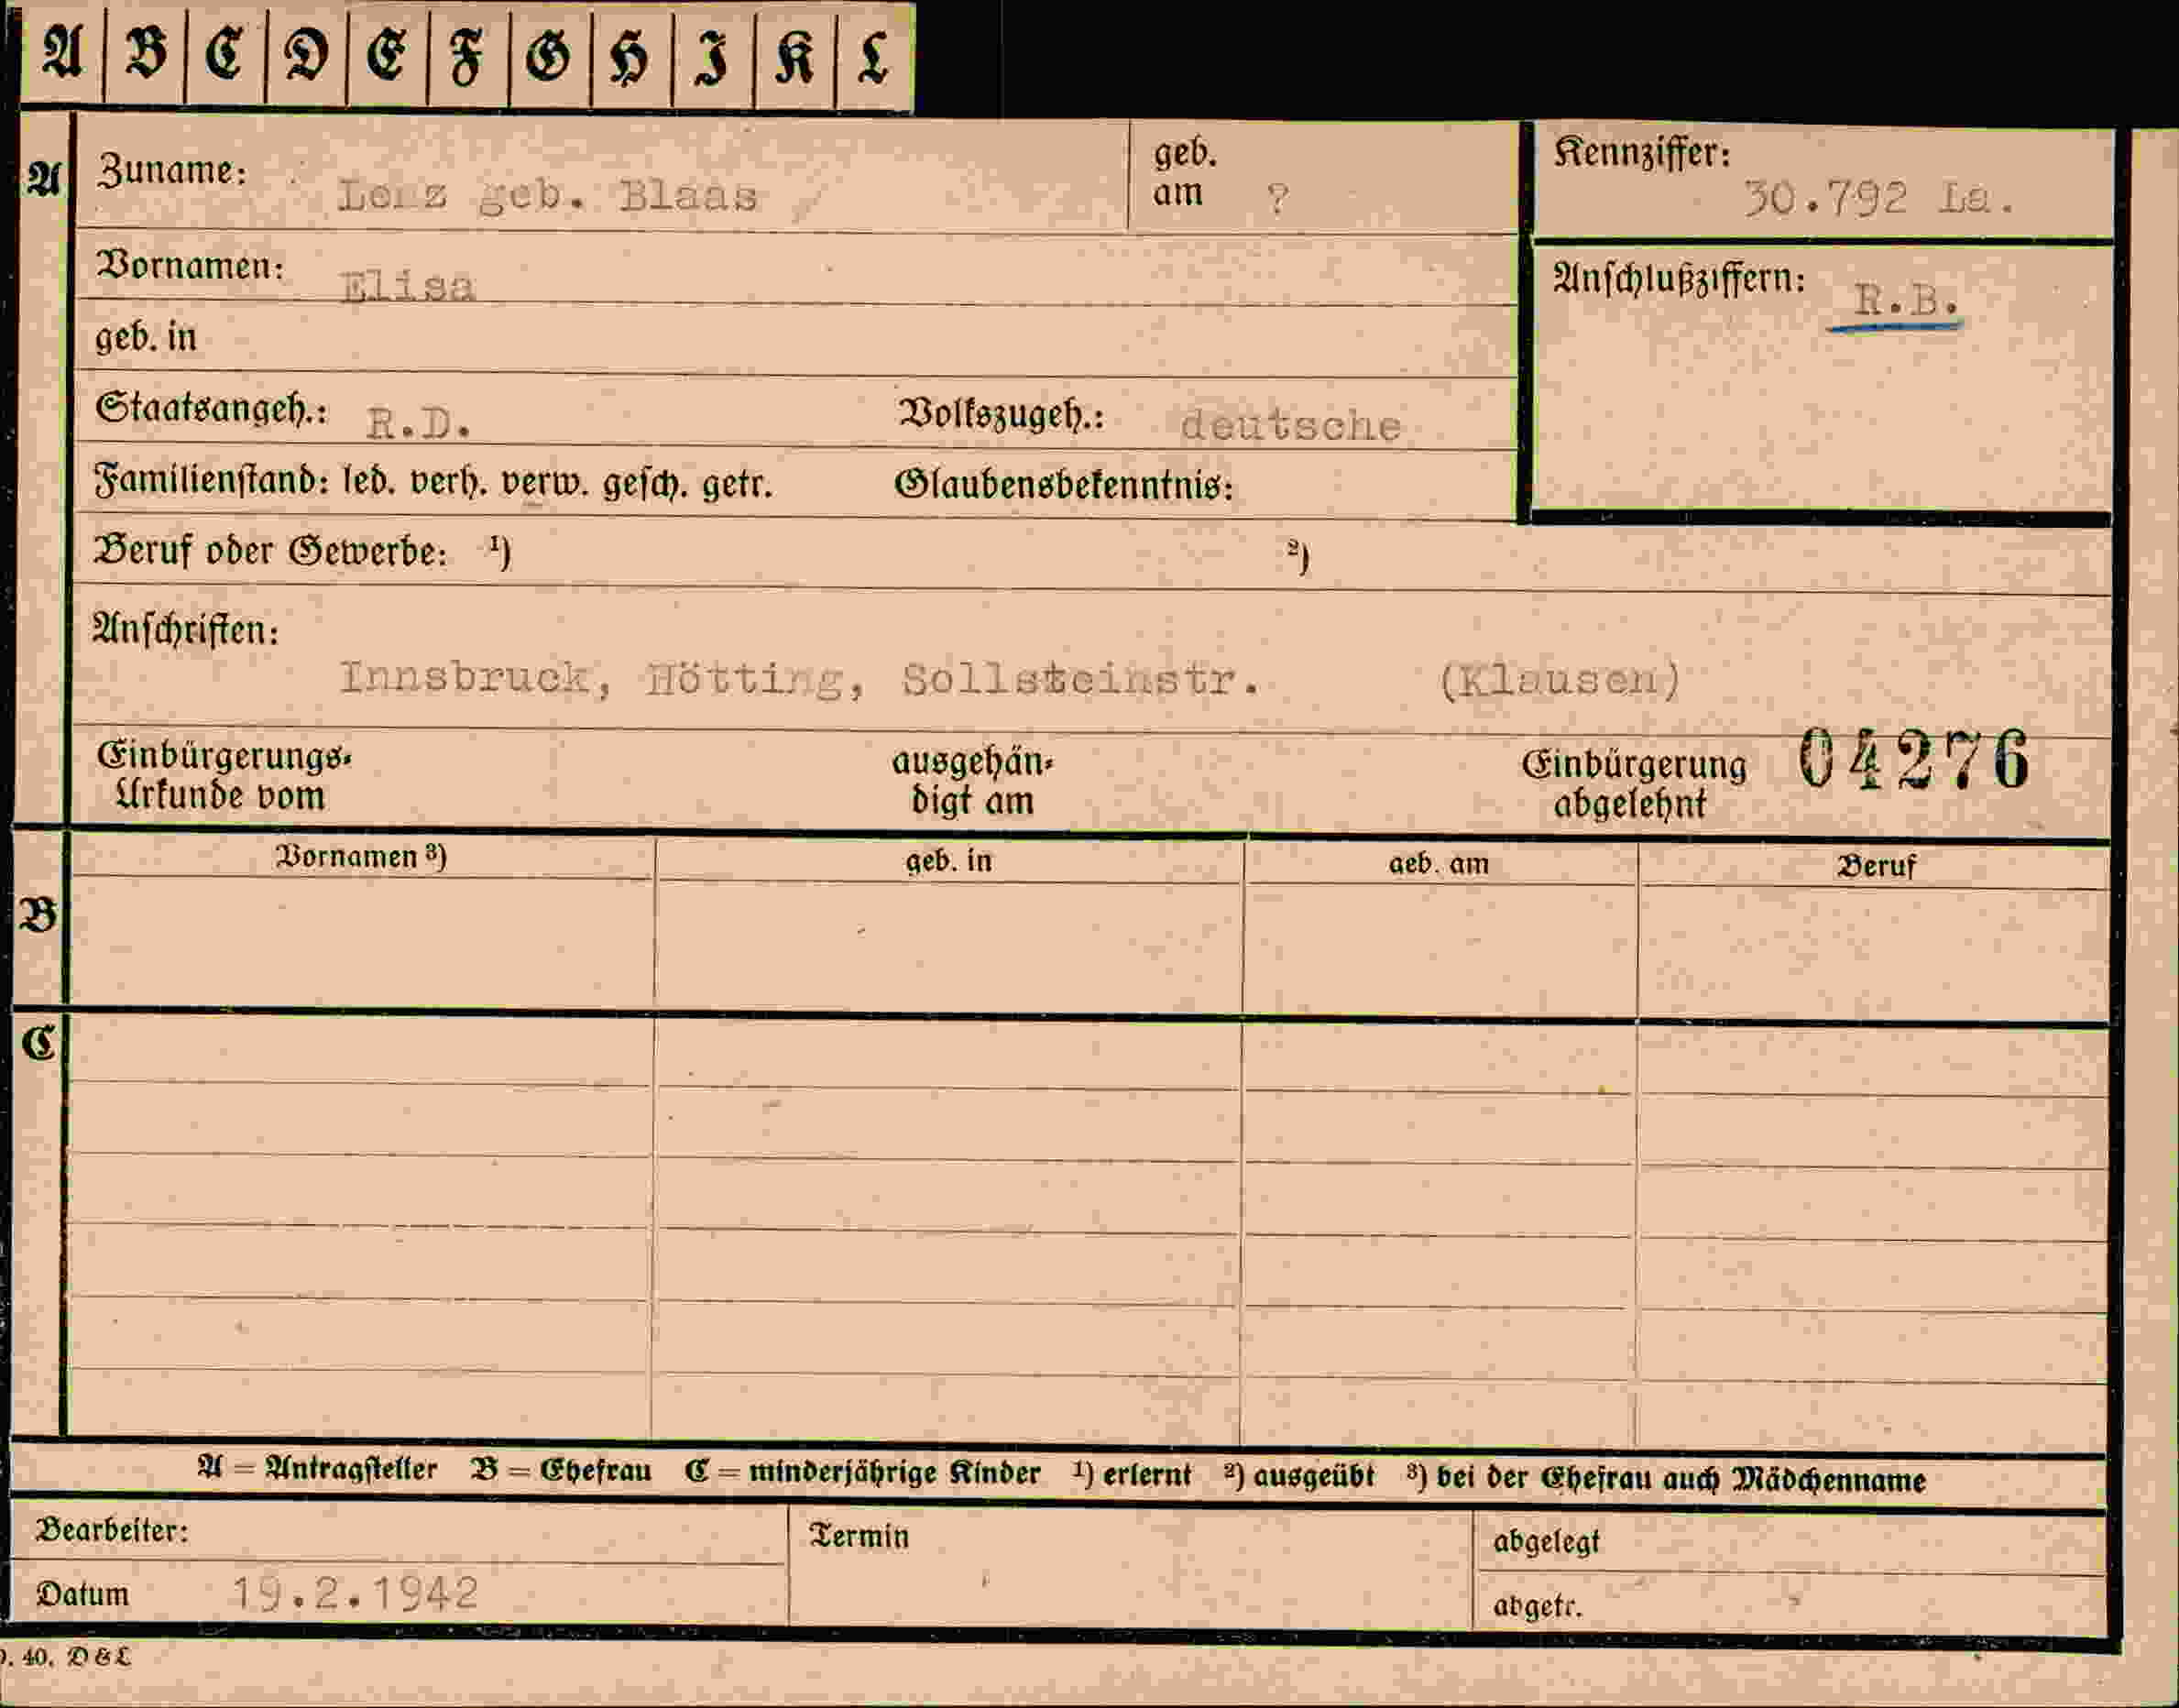 A B C D E F G H I K L
A Zuname: geb. Blaas geb. am ? Kennziffer: 30.792 La.
Vornamen: Elisa
Anschlußziffern: R.B.
geb. in
Staatsangeh.: R.D. Volkszugeh.: deutsche
Familienstand: led. verh. verw. gesch. getr. Glaubensbekenntnis:
Beruf oder Gewerbe: ¹) ²)
Anschriften:
Innsbruck, Hötting, Sollsteinstr. (Klausen)
Einbürgerungs- ausgehän- Einbürgerung 04276
Urkunde vom digt am abgelehnt
Vornamen ³) geb. in geb. am Beruf
B
C
A = Antragsteller B = Ehefrau C = minderjährige Kinder ¹) erlernt ²) ausgeübt ³) bei der Ehefrau auch Mädchenname
Bearbeiter: Termin abgelegt
Datum 19.2.1942 abgetr.
. 40. D & L